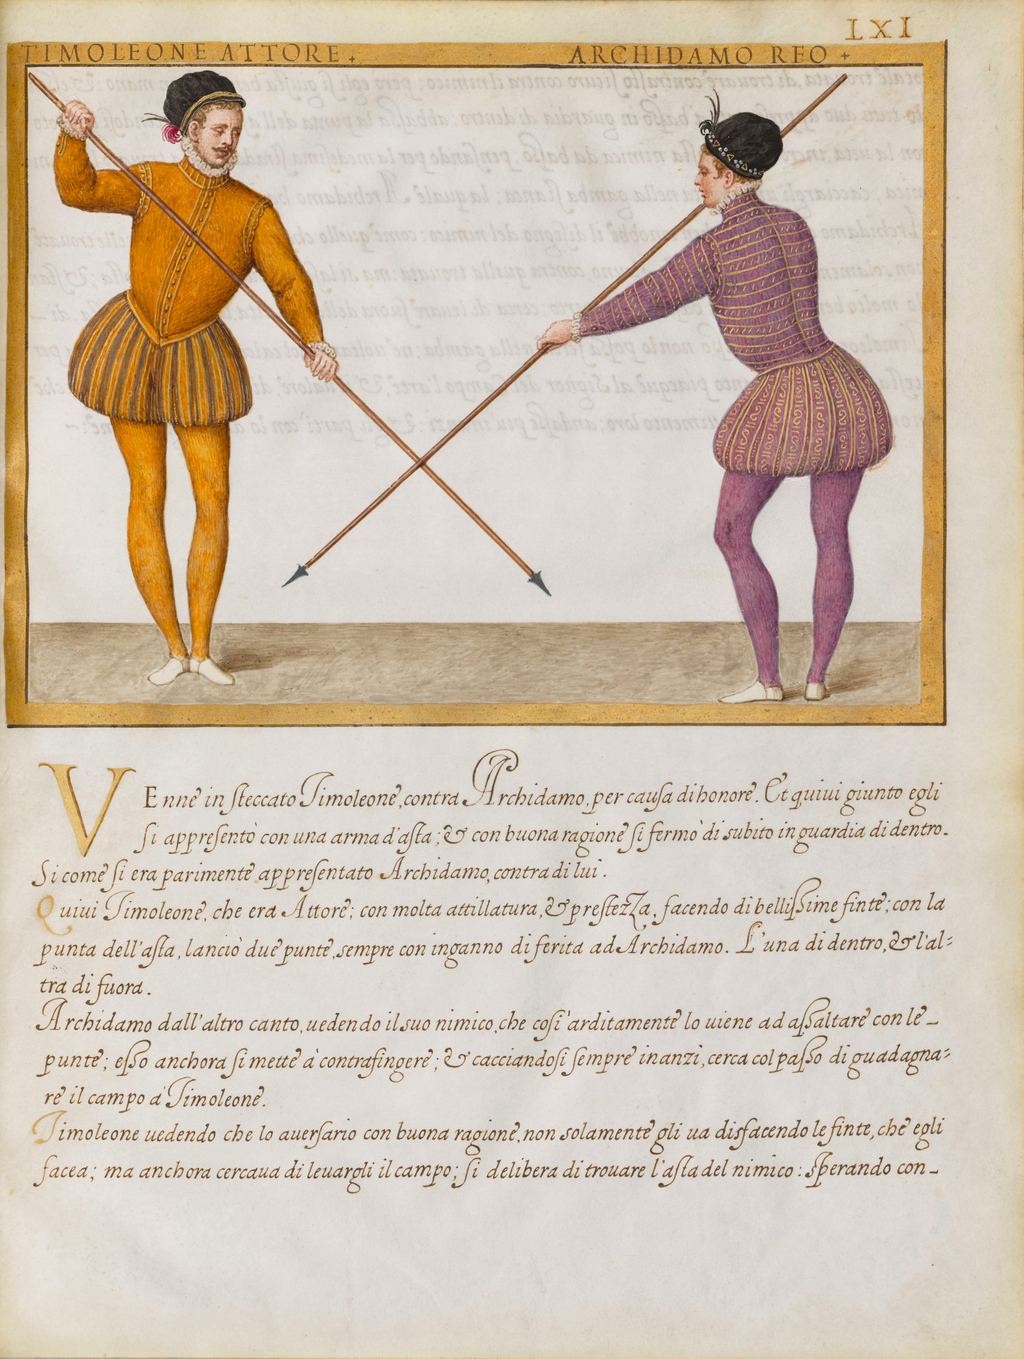 LXI
TIMOLEONE ATTORE + ARCHIDAMO REO +
VEnne in steccato Timoleone, contra Archidamo, per causa di honore. Et quiui giunto egli
si appresentò con una arma d'asta; & con buona ragione si fermò di subito in guardia di dentro.
Si come si era parimente appresentato Archidamo, contra di lui.
Quiui Timoleone, che era Attore; con molta attillatura, & prestezza, facendo di bellissime finte; con la
punta dell'asta, lanciò due punte, sempre con inganno di ferita ad Archidamo. L'una di dentro, & l'al=
tra di fuora.
Archidamo dall'altro canto, uedendo il suo nimico, che così arditamente lo uiene ad assaltare con le _
punte; esso anchora si mette à contrafingere; & cacciandosi sempre inanzi, cerca col passo di guadagna=
re il campo à Timoleone.
Timoleone uedendo che lo auersario con buona ragione, non solamente gli ua disfacendo le finte, che egli
facea; ma anchora cercaua di leuargli il campo; si delibera di trouare l'asta del nimico: sperando con _